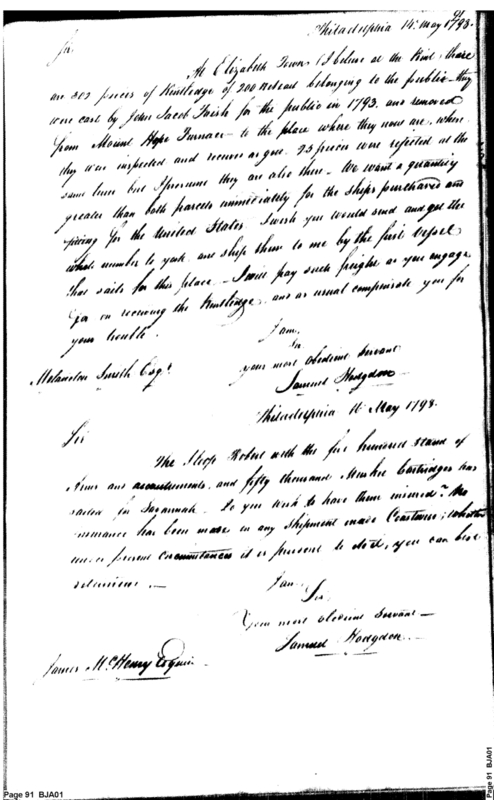 91
Philadelphia 14. May 1798.
Sir
At Elizabeth Town (I believe at the Point) there
are 302 pieces of Kentledge of 200 each belonging to the public - they
were cast by John Jacob Faish for the public in 1793. and removed
from Mount Hope Furnace - to the place where they now are, where
they were inspected and receiv'd as good. 23 pieces were rejected at the
same time but I presume they are also there - We want a quantity
greater than both parcels immediately for the ships purchased and
fixing for the United States - I wish you would send and get the
whole number to york and ship them to me by the first Vessel
that sails for this place - I will pay such freight as you engage
for on receiving the Kentledge and as usual compensate you for
your trouble.
I am,
Sir
your most obedient Servant
Samuel Hodgdon
Melancton Smith Esqr.
Philadelphia 16 May 1798.
Sir
The Sloop Robert with the five hundred stand of
Arms and accoutrements and fifty thousand Musket Cartridges has
sailed for Savannah - Do you wish to have them insured? No
insurance has been made on any Shipment made Coastwise; whether
under present circumstances it is prudent to do it, you can best
determine. -
I am,
Sir,
Your most obedient Servant -
Samuel Hodgdon -
James McHenry Esquire -
Page 91 BJA01
Page 91 BJA01